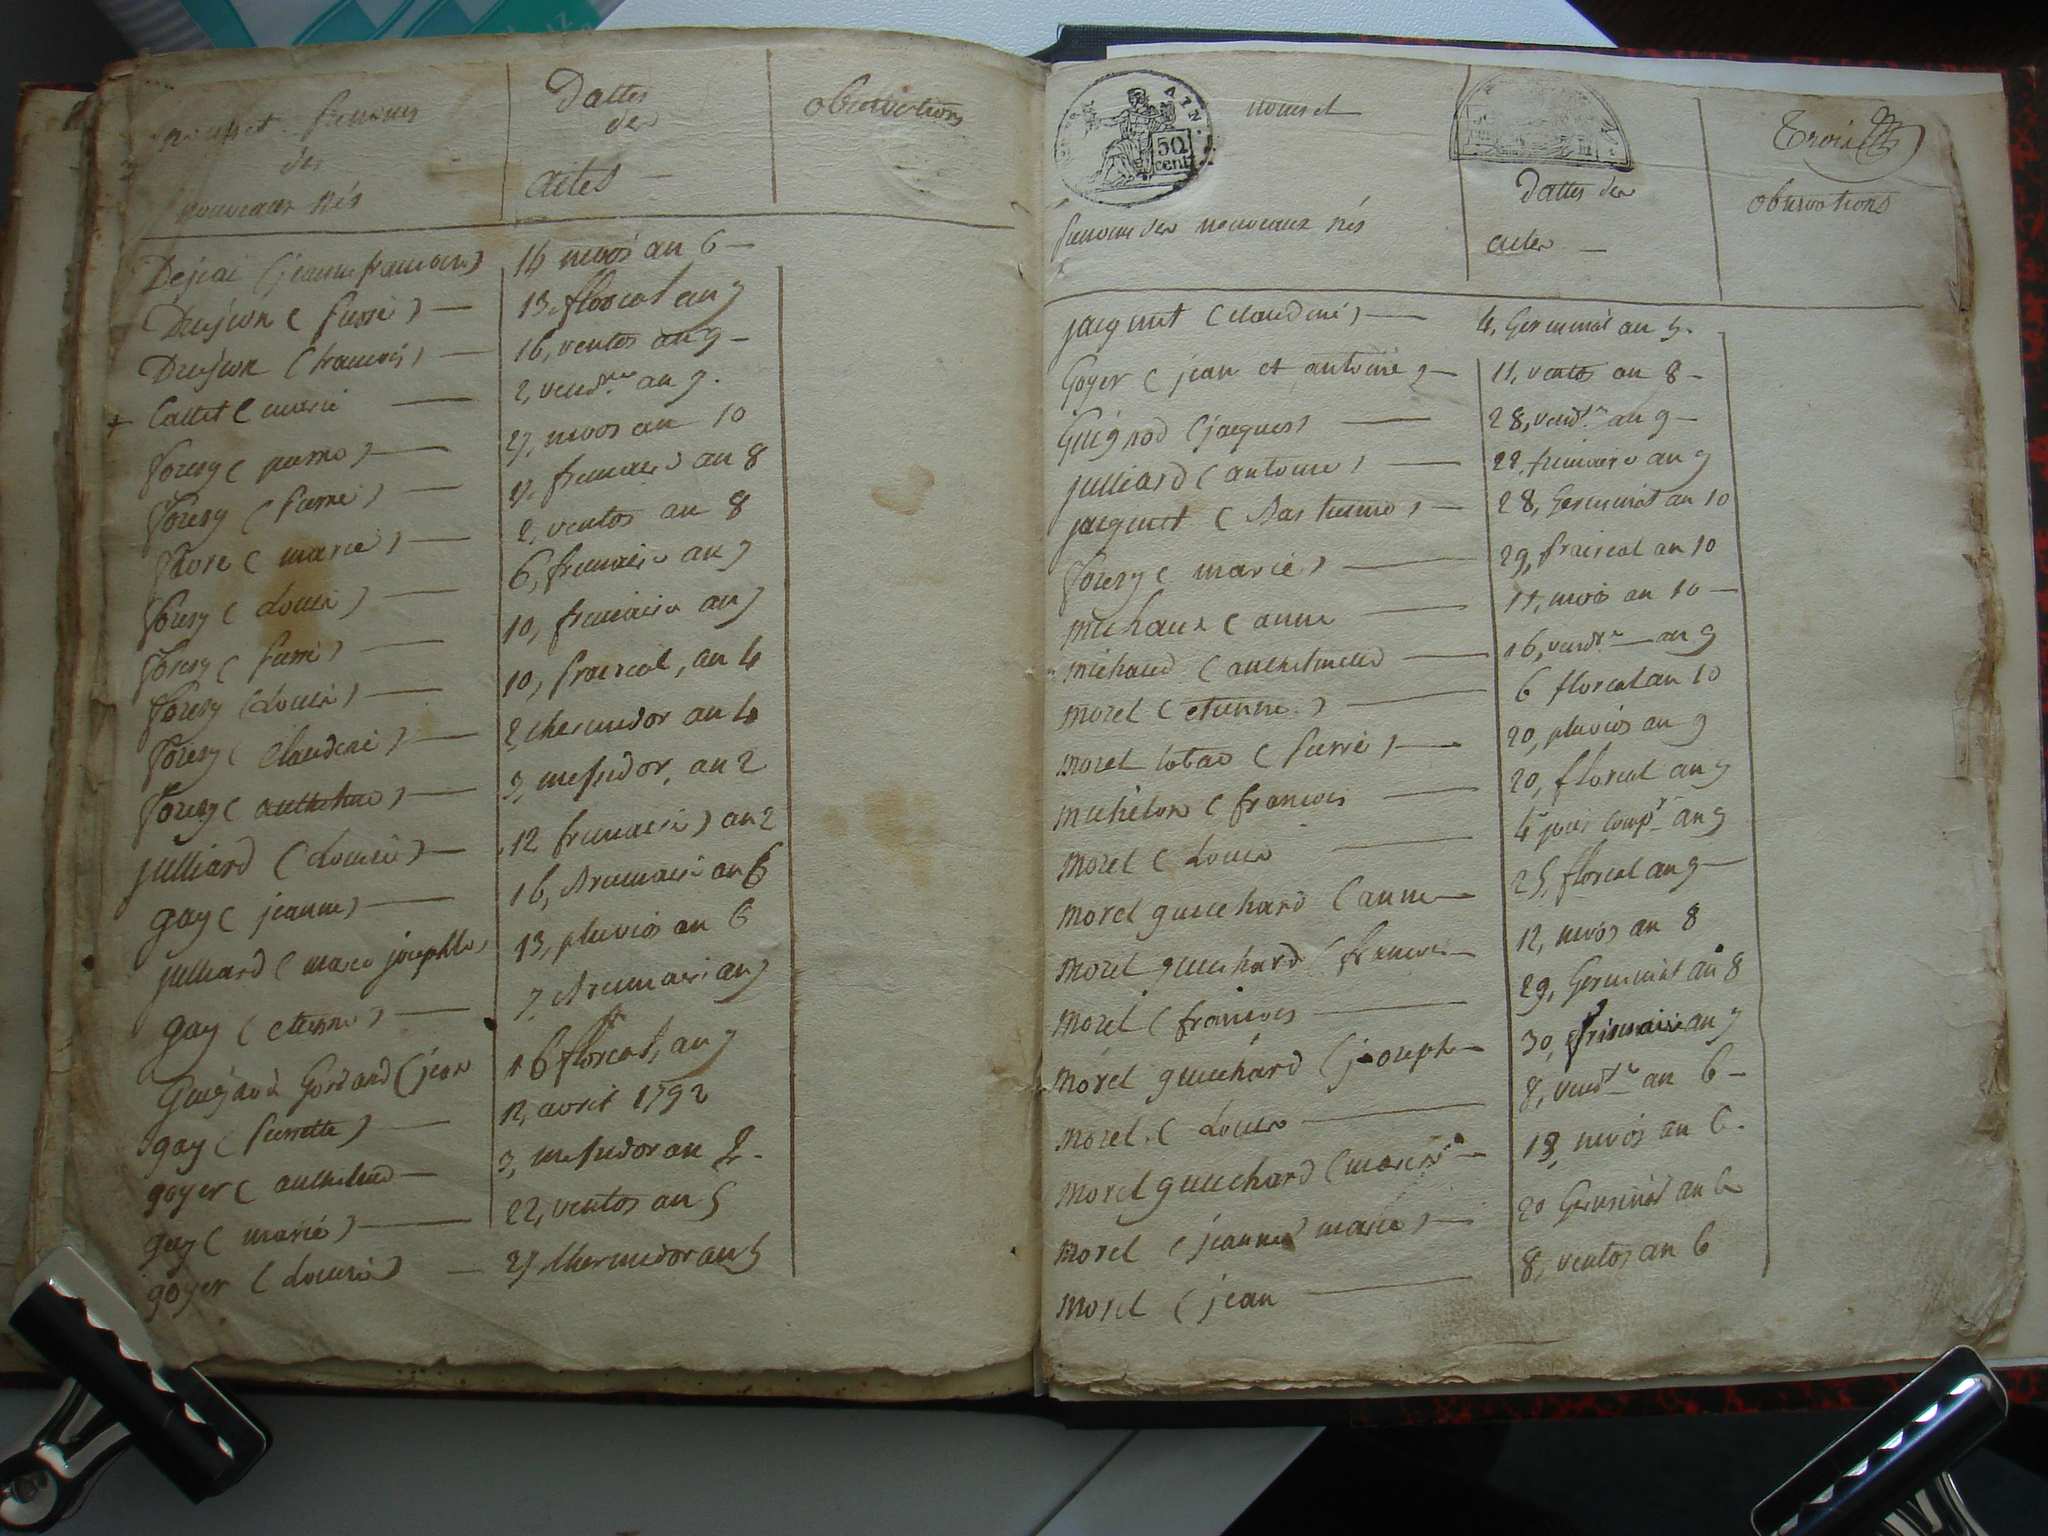 noms et prenoms
des
nouveaux nés
Dattes
des
actes
observations
Dejean (jeanne francoise) 14 nivos an 6
Drujon (pierre) 13, floreal an 9
Drujon (francois) 16, ventos an 9
+ Callet (marie 2, vend.re an 9.
Forery (pierre) 27, nivos an 10
Forery (pierre) frimaire an 8
Favre (marie) 2, ventos an 8
Forery (Louise) 6, frimaire an 9
Forery (pierre) 10, frimaire an 9
Forery (Louise) 10, prairial, an 4
Forery (Claudine) 2 thermidor an 4
Forery (anthelme) 3, messidor, an 2
julliard (Louise) 12 frimaire) an 2
gay (jeanne) 16, Brumaire an 6
julliard (marie josephte) 13, pluvios an 6
gay (etienne) 7, Brumaire an 9
Guignod Gordand (jean 16 floreal, an 9
gay (pierrette) 12, avril 1792
goyer (anthelme 3, messidor an 2.
gay (marie) 22, ventos an 5
goyer (Louise) thermidor an 5
AIN.
50
cent
noms et
prenoms des nouveaux nés
Dattes des
actes
Trois
observations
jacquet (claudine) 4, Germinal an 5.
Goyer (jean et antoine 11, ventos an 8
Guignod (jacques) 28, vend.re an 9
julliard (antoine) 22, frimaire an 9
jacquet (Bastienne) 28, Germinal an 10
Forery (marie) 29, prairial an 10
michaux (anne 11, nivos an 10
michaud (anthelmette 16, vend.re an 9
morel (etienne) 6 floreal an 10
morel (pierre) 20, pluvios an 9
michelon (francois 20, floreal an 9
morel (Louise 4e jour comp.r an 9
morel guichard (anne 25, floreal an 9
morel guichard (francois 12, nivos an 8
morel (francois 29, Germinal an 8
morel guichard (joseph 30, frimaire an 9
morel (Louise 8, vend.re an 6
morel guichard (marie 13, nivos an 6.
morel (jeanne marie) 20 Germinal an 6
morel (jean 8, ventos an 6